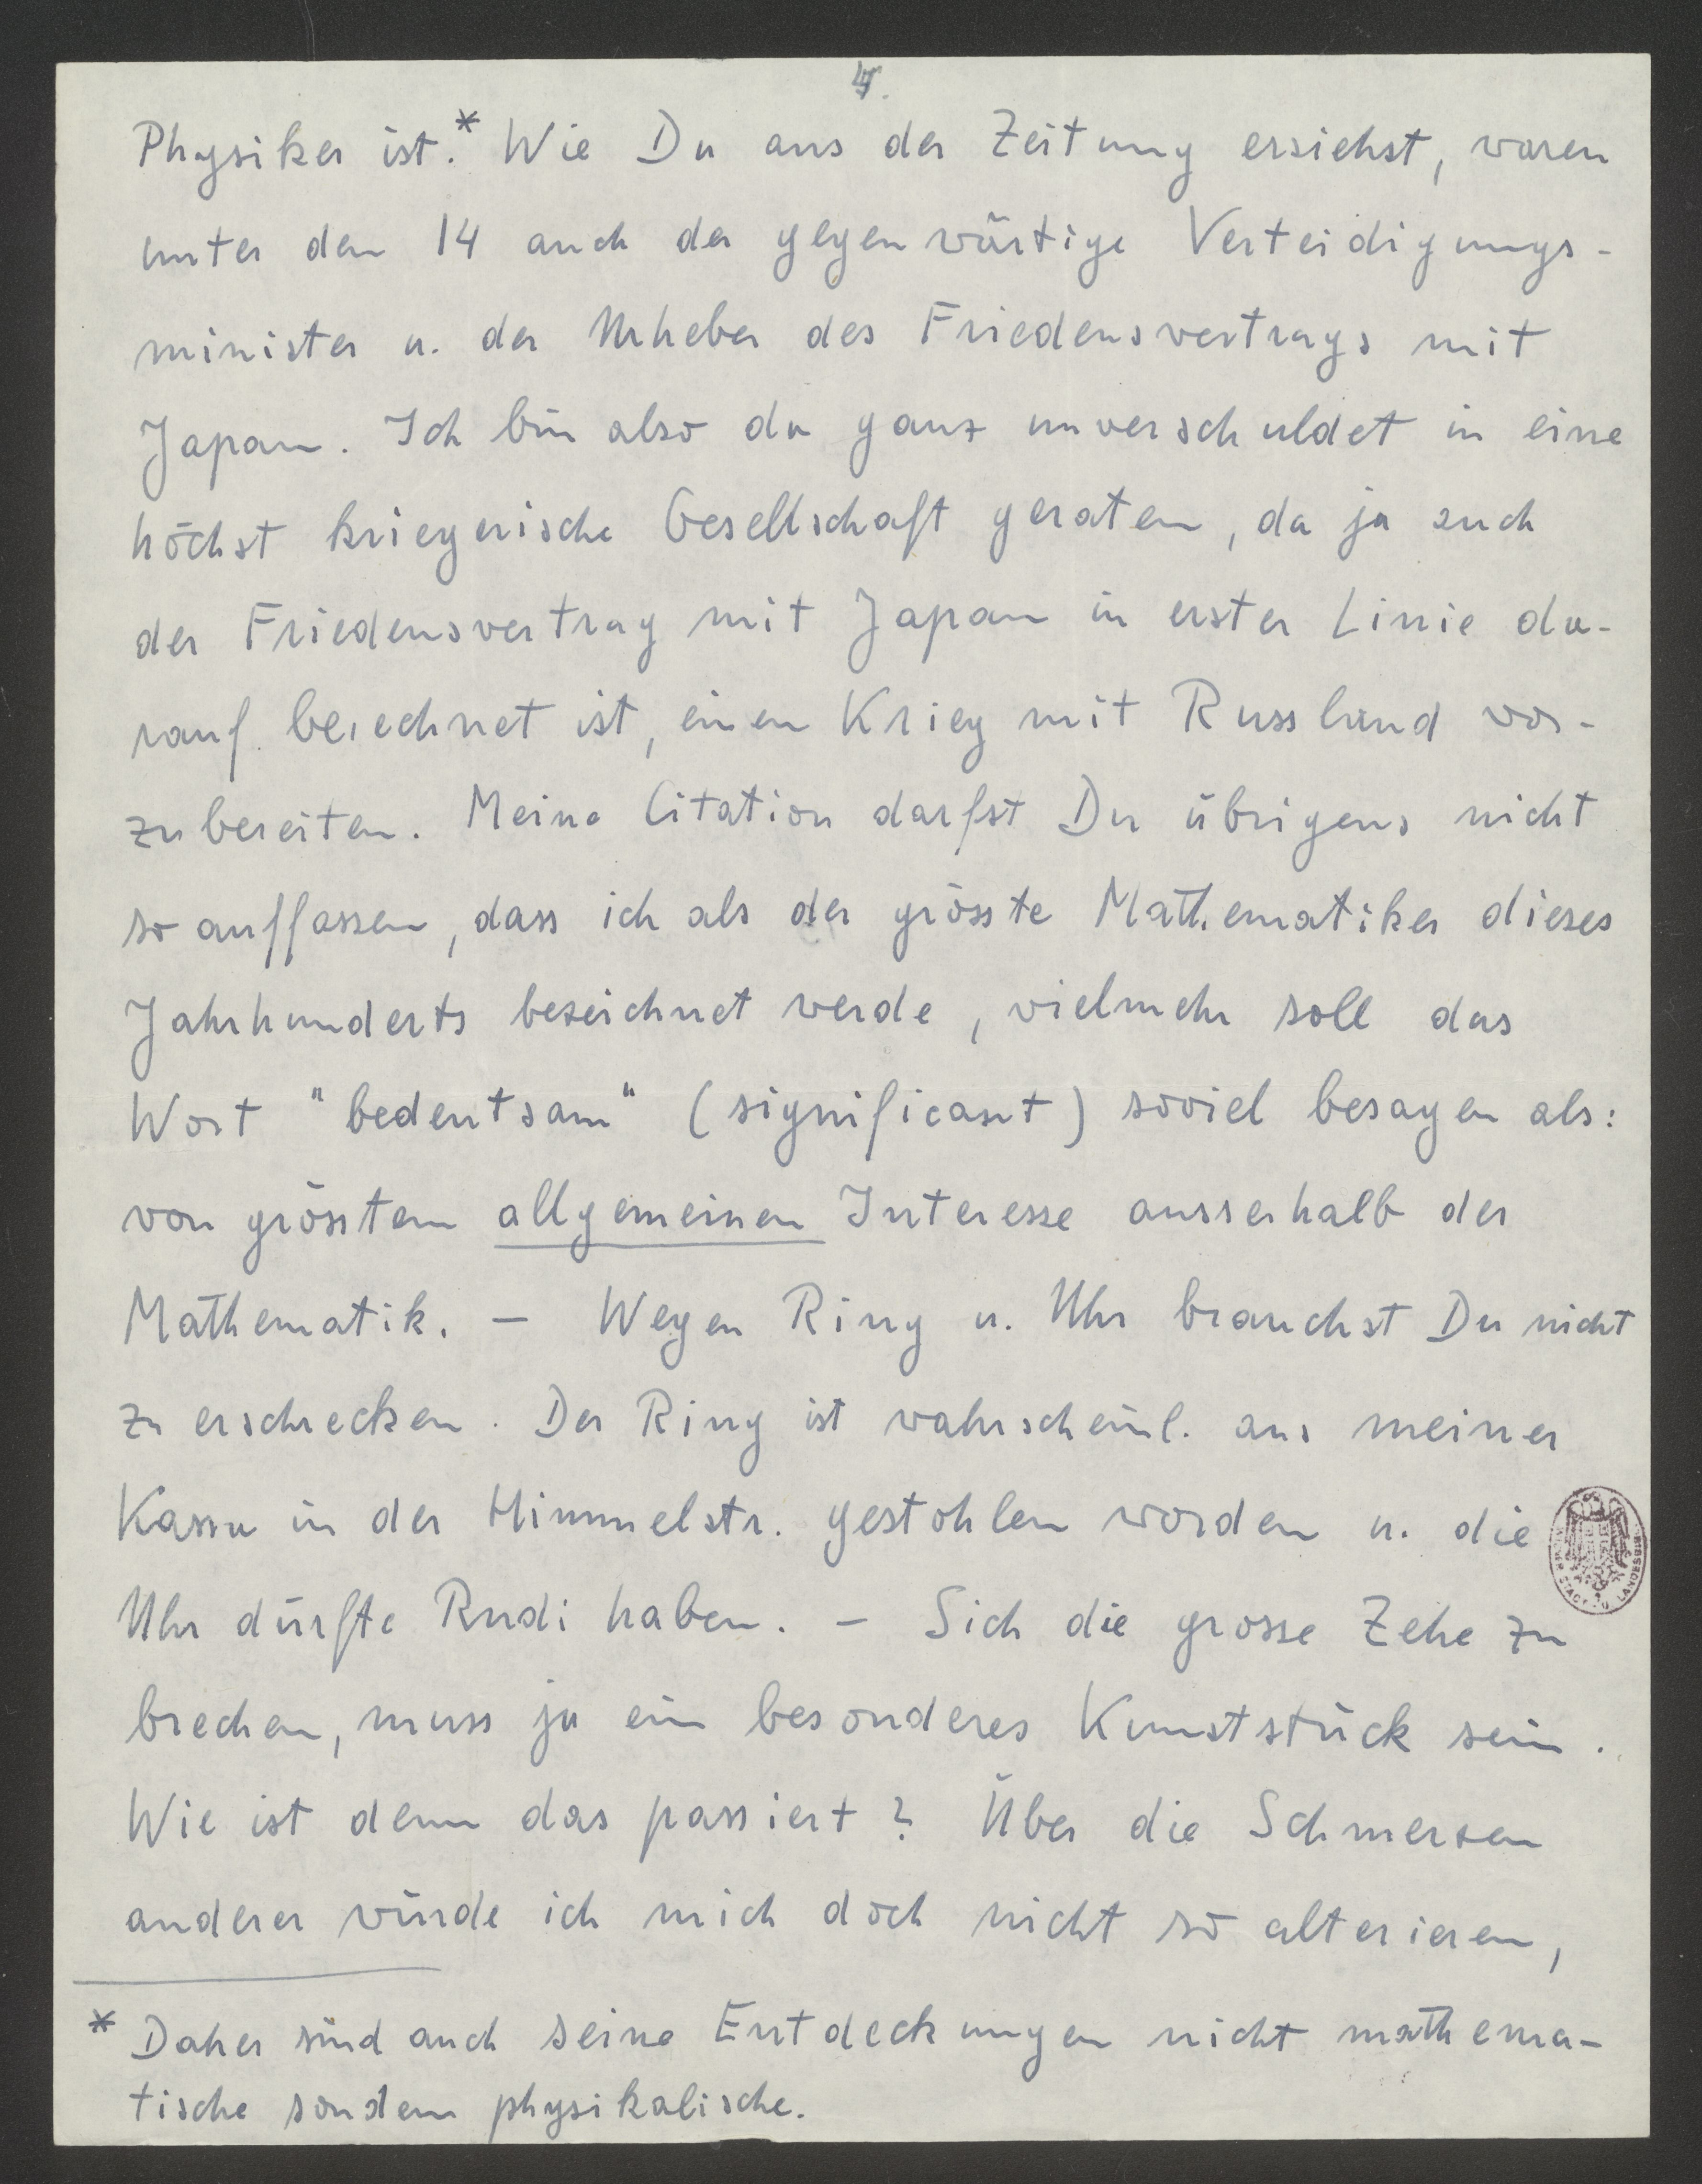 4.
Physiker ist.* Wie Du aus der Zeitung ersiehst, waren
unter den 14 auch der gegenwärtige Verteidigungs-
minister u. der Urheber des Friedensvertrags mit
Japan. Ich bin also da ganz unverschuldet in eine
höchst kriegerische Gesellschaft geraten, da ja auch
der Friedensvertrag mit Japan in erster Linie da-
rauf berechnet ist, einen Krieg mit Russland vor-
zubereiten. Meine Citation darfst Du übrigens nicht
so auffassen, dass ich als der grösste Mathematiker dieses
Jahrhunderts bezeichnet werde, vielmehr soll das
Wort "bedeutsam" (significant) soviel besagen als:
von grösstem allgemeinen Interesse ausserhalb der
Mathematik. – Wegen Ring u. Uhr brauchst Du nicht
zu erschrecken. Der Ring ist wahrscheinl. aus meiner
Kassa in der Himmelstr. gestohlen worden u. die
Uhr dürfte Rudi haben. – Sich die grosse Zehe zu
brechen, muss ja ein besonderes Kunststück sein.
Wie ist denn das passiert? Über die Schmerzen
anderer würde ich mich doch nicht so alterieren,
* Daher sind auch seine Entdeckungen nicht mathema-
tische sondern physikalische.